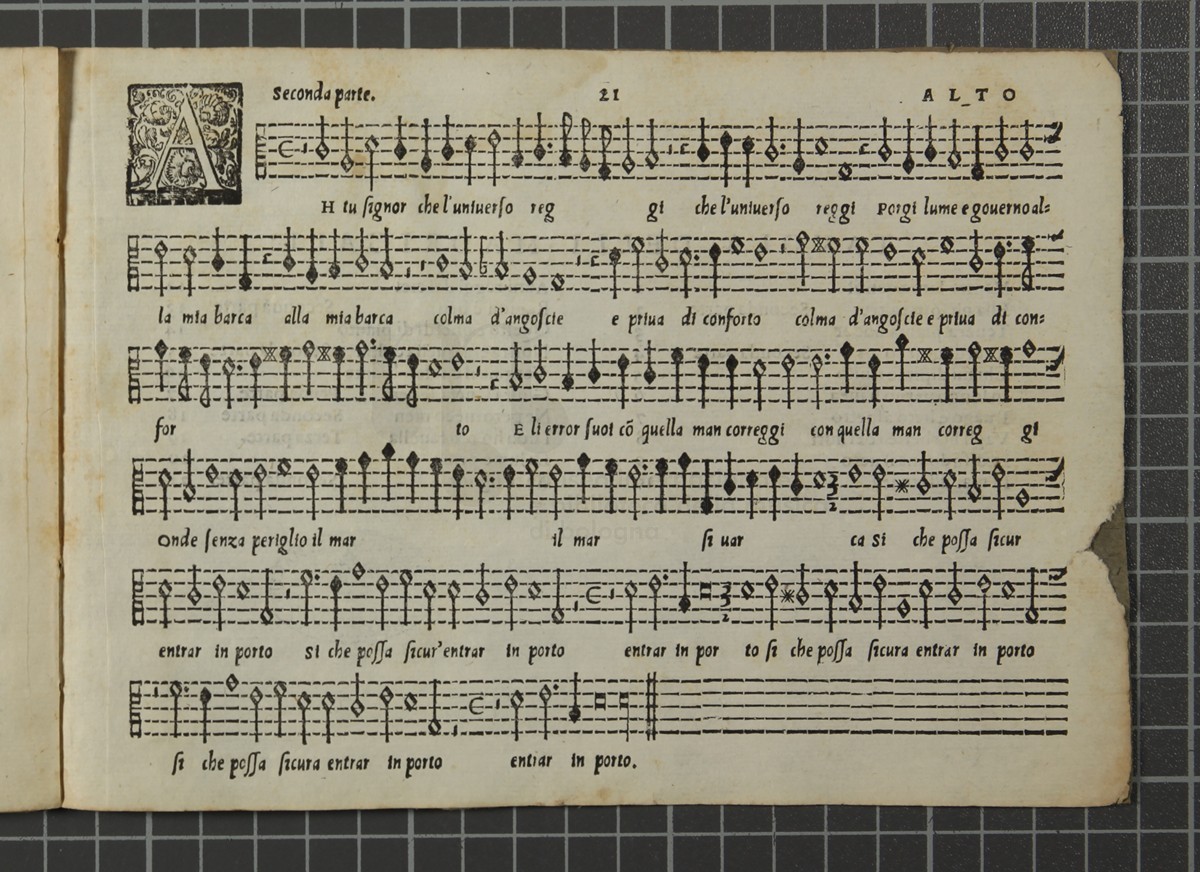 Seconda parte. 21 ALTO
AH tu ſignor che l'uniuerſo reg gi che l'uniuerſo reggi Porgi lume e gouerno al=
la mia barca alla mia barca colma d'angoſcie e priua di conforto colma d'angoſcie e priua di con=
for to E li error ſuoi cõ quella man correggi con quella man correg gi
Onde ſenza periglio il mar il mar ſi uar ca Si che poſſa ſicur
entrar in porto Si che poſſa ſicur'entrar in porto entrar in por to ſi che poſſa ſicura entrar in porto
ſi che poſſa ſicura entrar in porto entrar in porto.